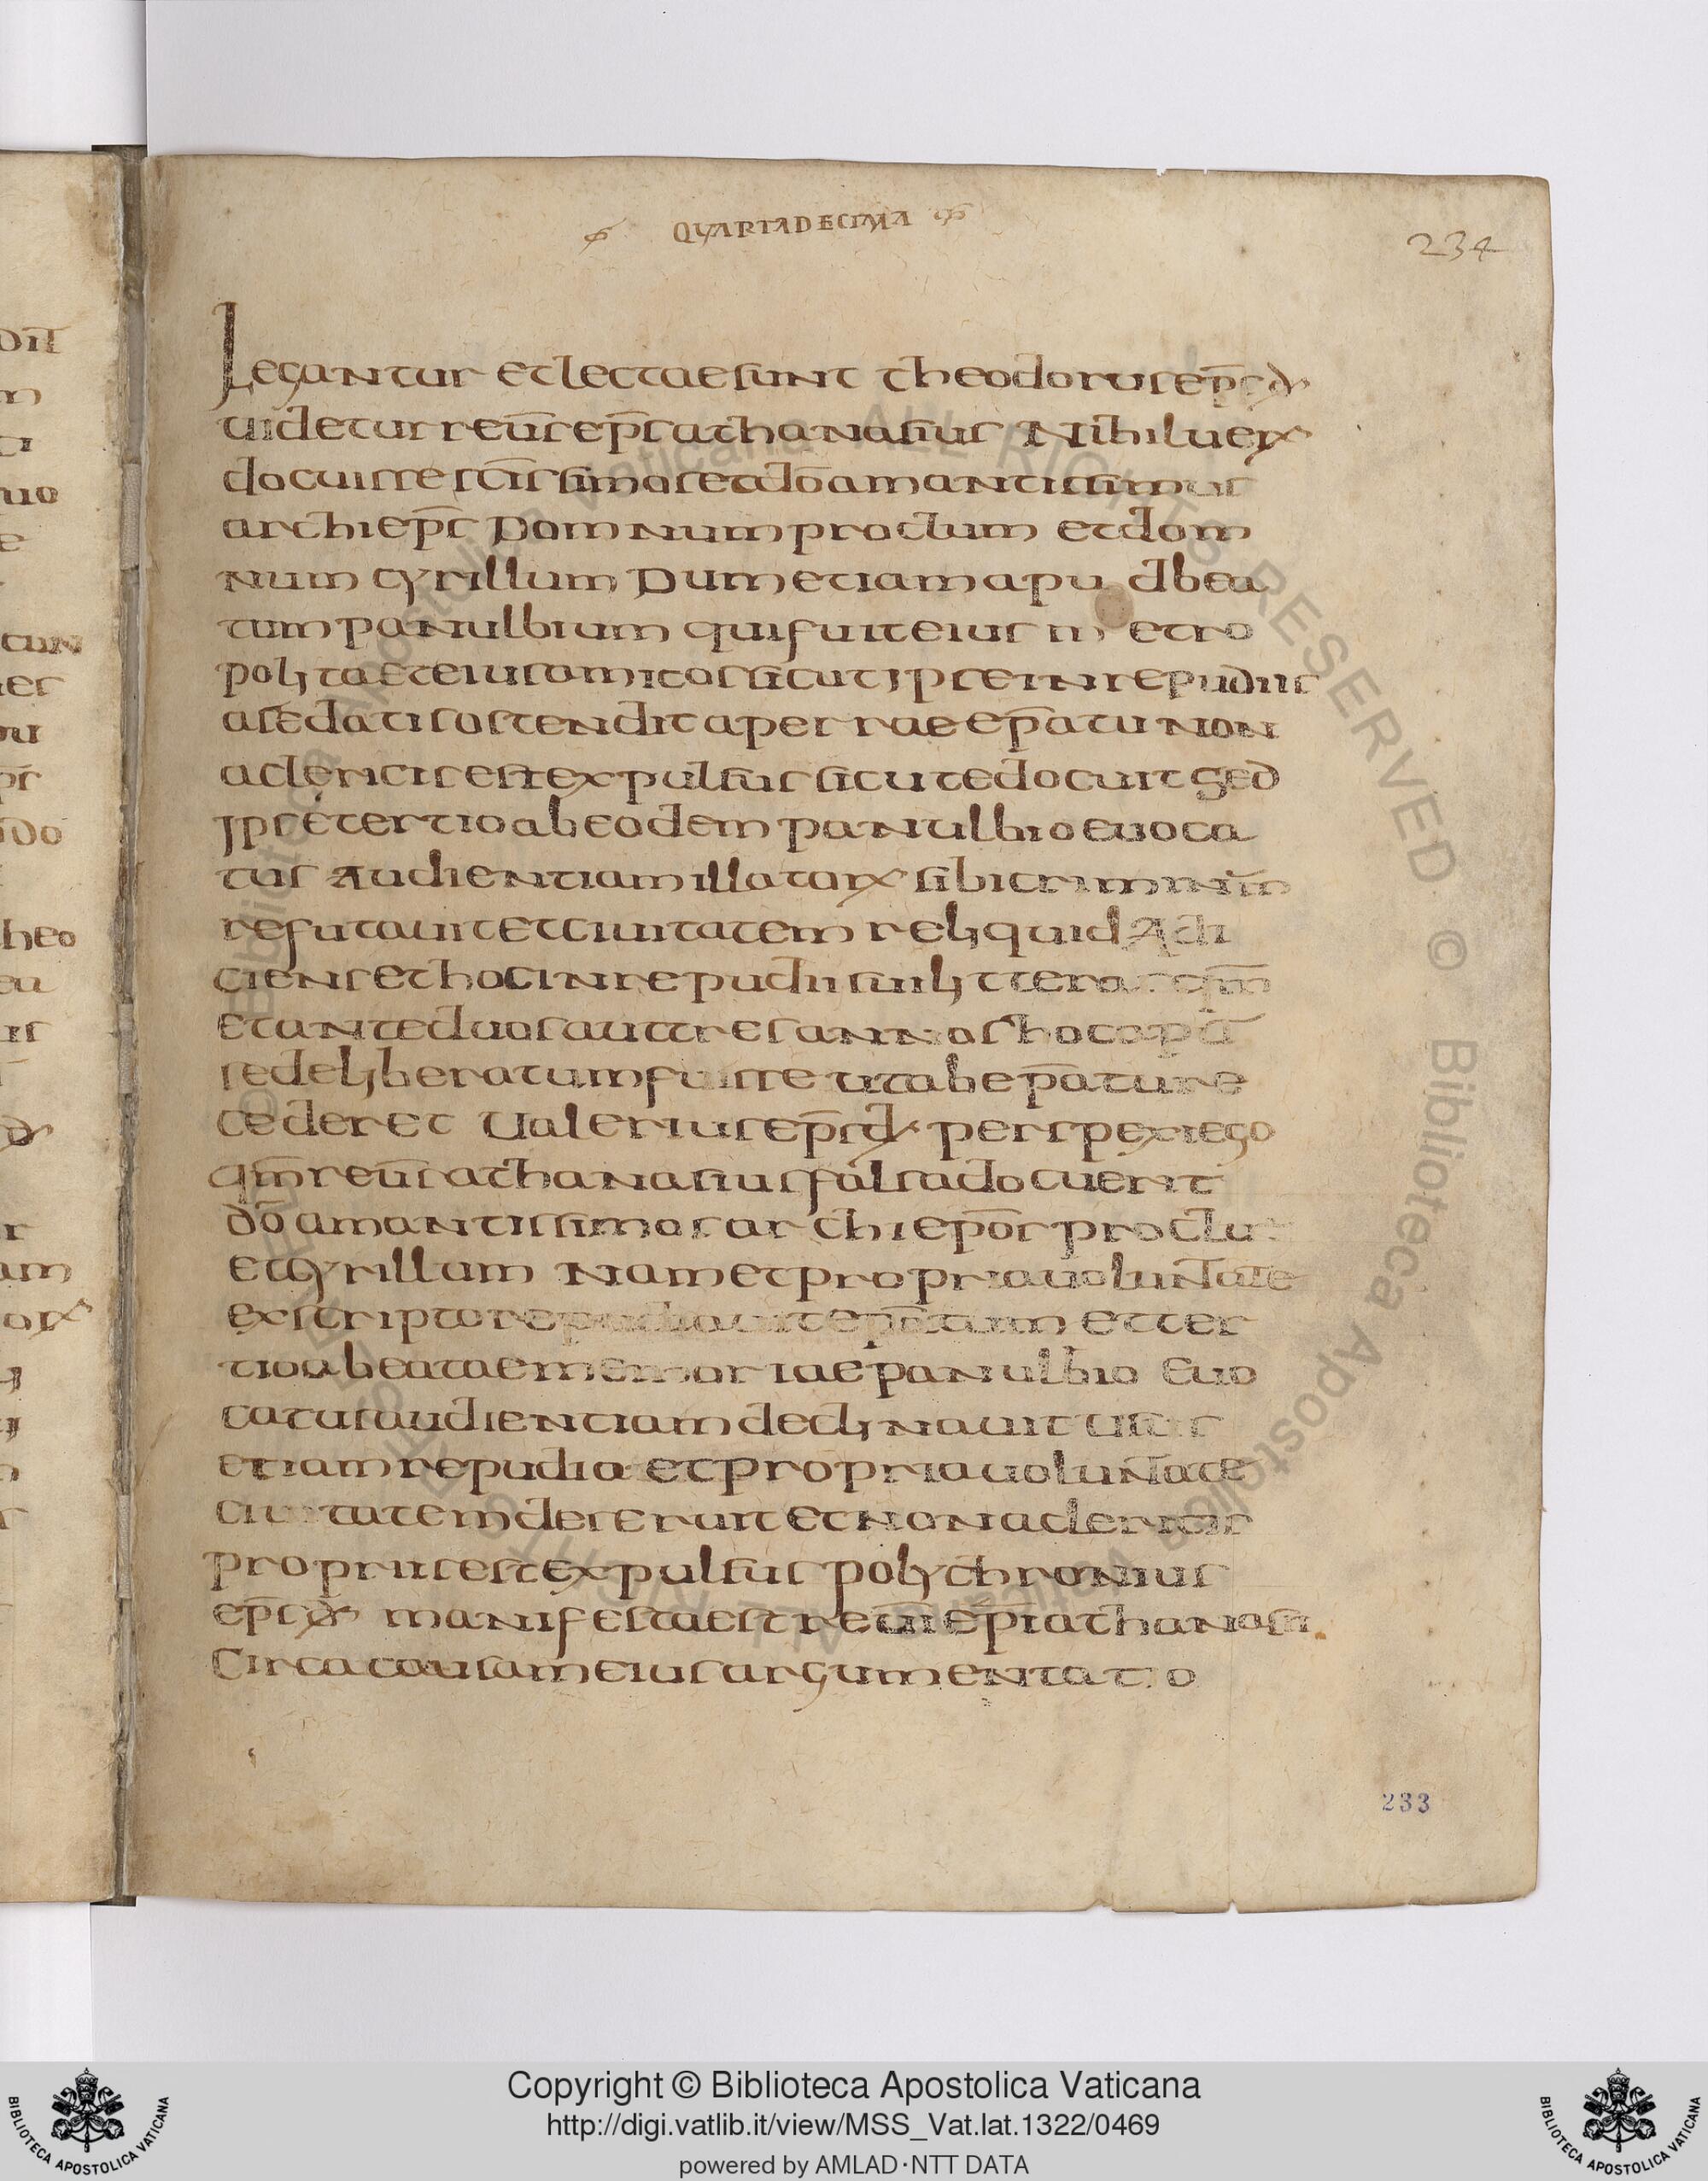 QUARTADECIMA
234
Legantur et lectae sunt theodorus ep̄s d̄
uidetur reūs ep̄s athanasius Nihil uer
docuisse sc̄issimos et d̄o amantissimus
archiep̄s Domnum proclum et dom
num cyrillum Dum etiam apud bea
tum panulbium qui fuit eius metro
polita et eius amicos sicut ipse in repudiis
a se datis ostendit a perrae ep̄atu non
a clericis est expulsus sicut edocuit Sed
ipse tertio ab eodem panulbio euoca
tus Audientiam illatar sibi criminū
refutauit et ciuitatem reliquid Adi
ciens et hoc in repudii sui litteras qm̄
et ante duos aut tres annos hoc
sed eliberatum fuisse ut ab ep̄atu re
cederet Ualerius ep̄s d̄ perspexi ego
qm̄ reūs athanasius falsa docuerit
d̄o amantissimos archiep̄os proclu
et cyrillum Nam et propria uoluntate
exscripto repudiauit ep̄atum et ter
tio a beatae memoriae panulbio euo
catus audientiam declinauit
etiam repudia et propria uoluntate
ciuitatem deseruit et non a clericis
propriis est expulsus polychronius
ep̄s d̄ manifesta est reūi ep̄i athanasi
Circa causam eius argumentatio
233
dil
cun
heo
Copyright © Biblioteca Apostolica Vaticana
http://digi.vatlib.it/view/MSS_Vat.lat.1322/0469
powered by AMLAD·NTT DATA
BIBLIOTECA APOSTOLICA VATICANA
BIBLIOTECA APOSTOLICA VATICANA